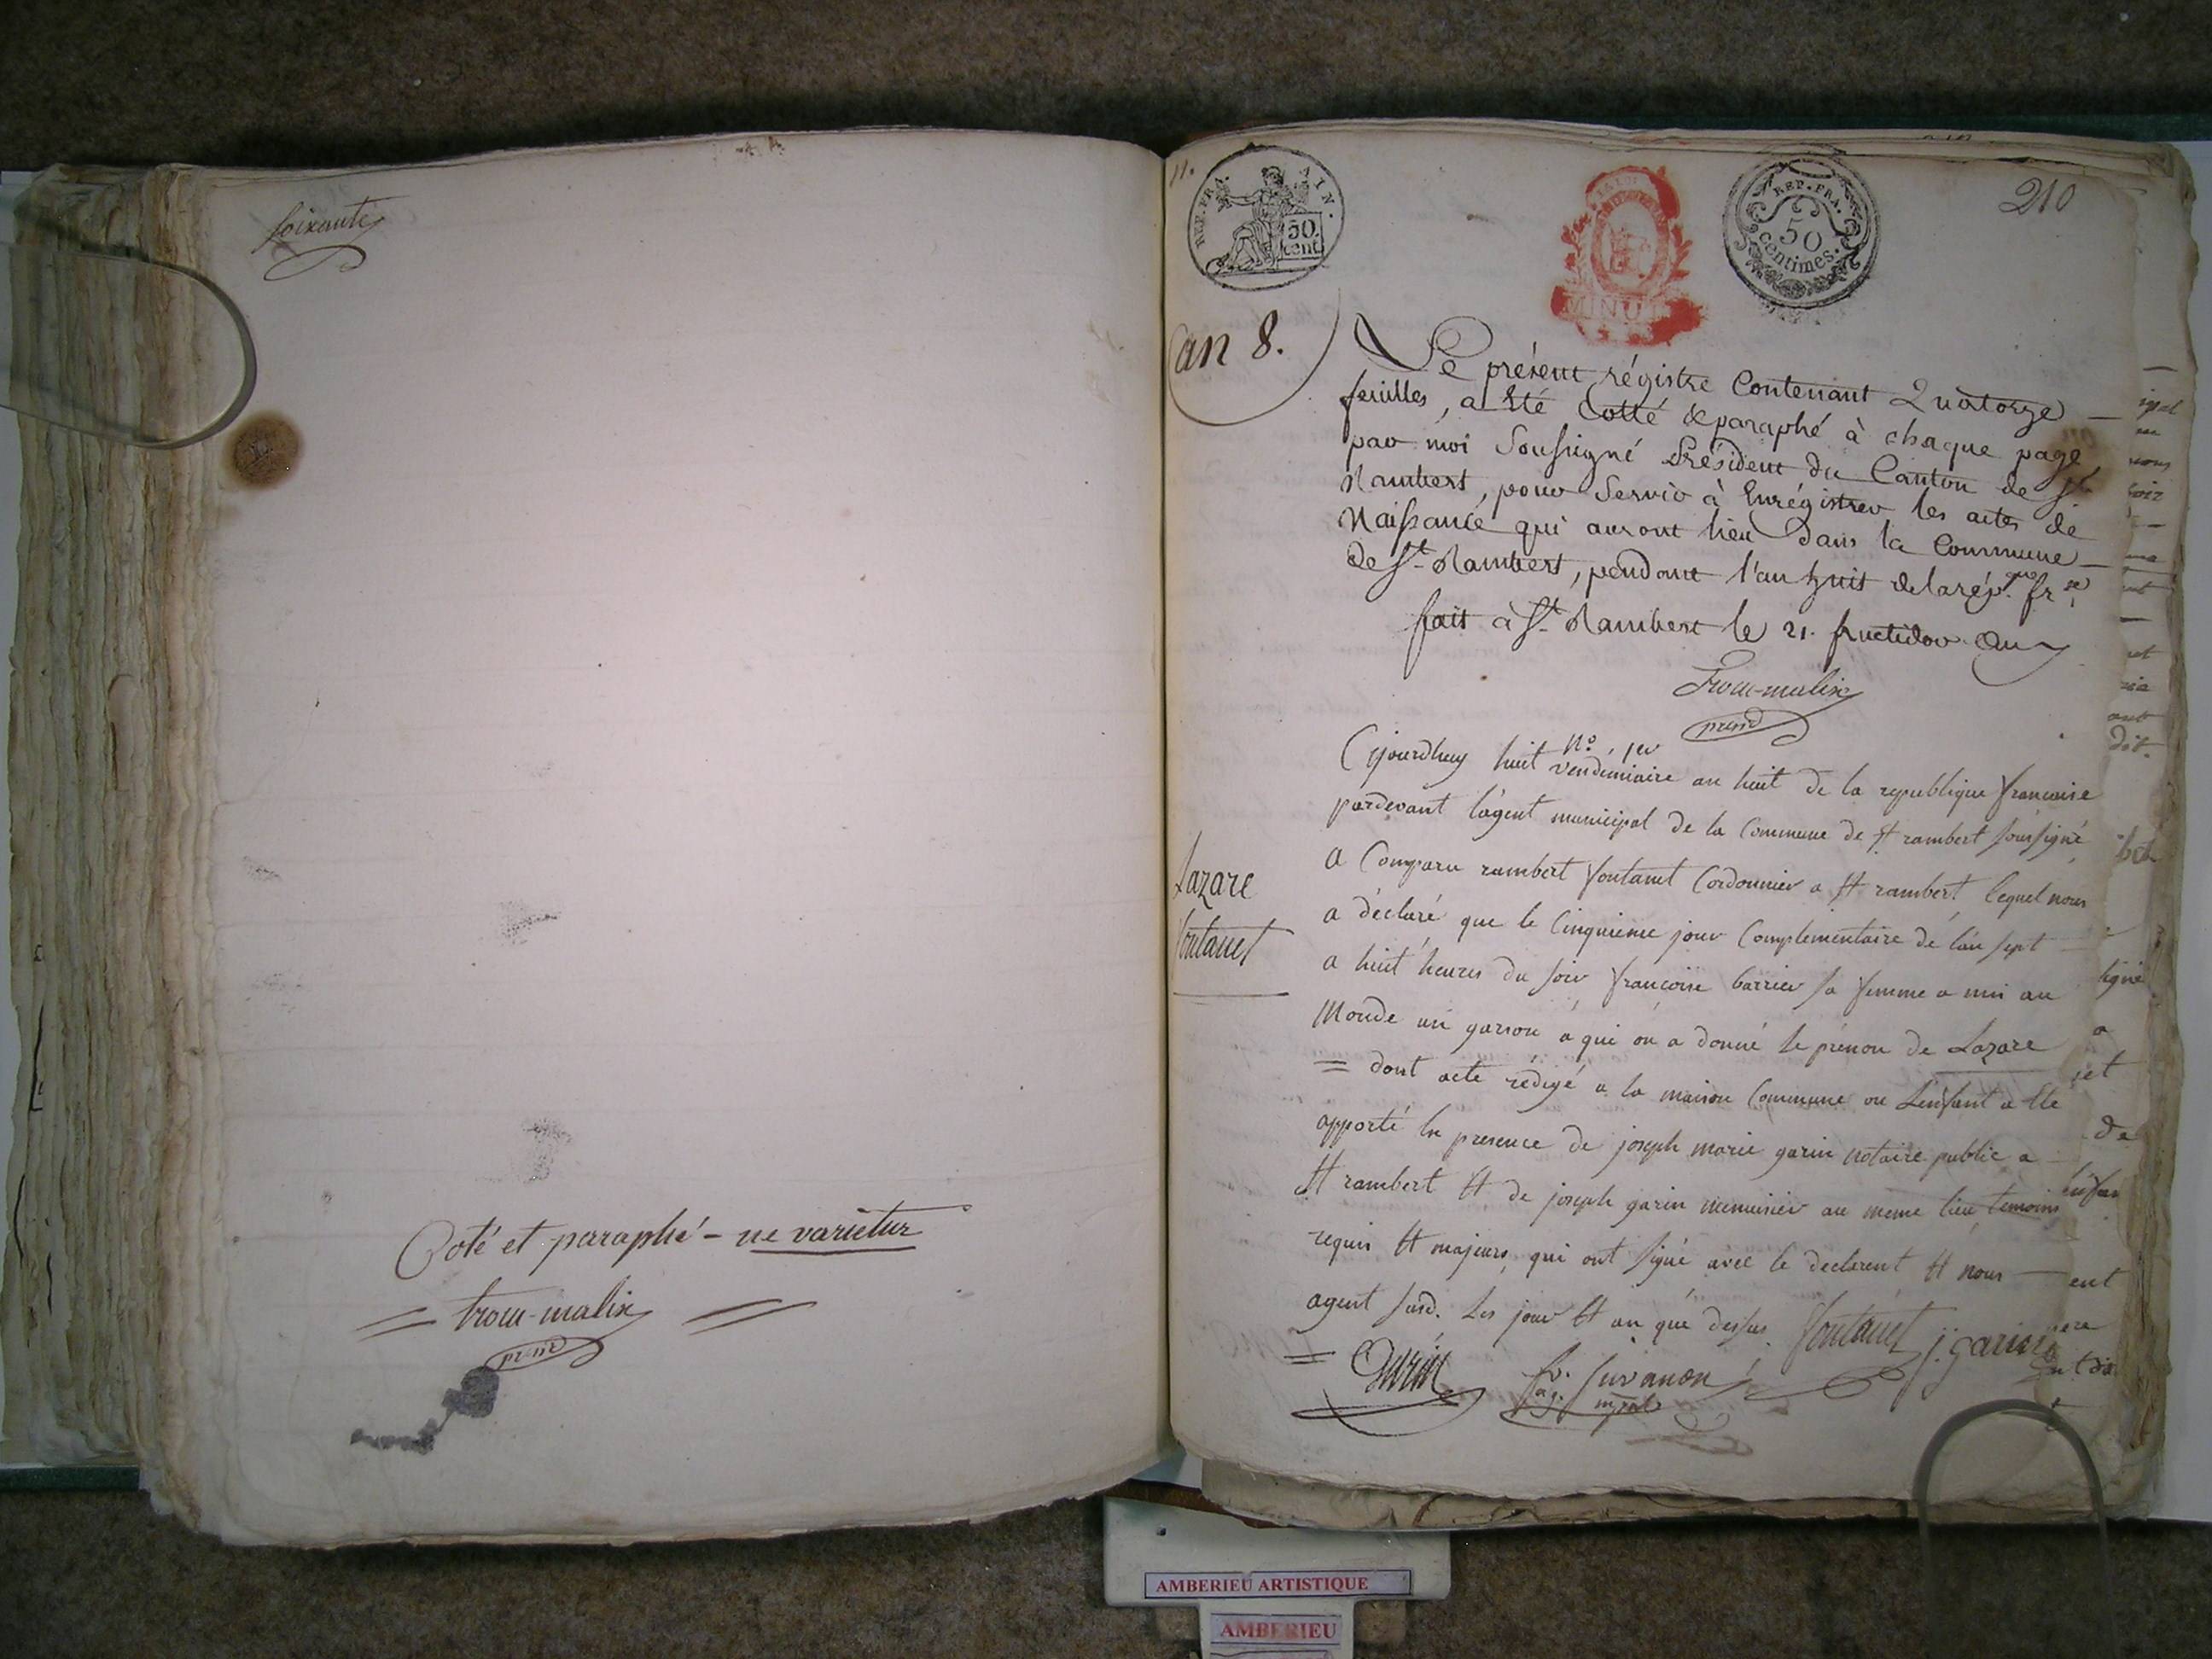 soixante
Coté et paraphé - ne varietur
trocu-malix
presid
11.
REP. FRA. AIN.
50. cent
MINUT
REP. FRA.
50
centimes.
210
an 8.
Le présent régistre Contenant Quatorze
feuilles, a Eté Cotté & paraphé à chaque page
par moi Soussigné Président du Canton de St
Rambert, pour Servir à Enrégistrer les actes de
Naissance qui auront lieu dans la Commune
de St Rambert, pendant l'an huit de la répque frse
fait à St Rambert le 21. fructidor an 7
trocu-malix
presid
No. 1er
Cejourdhuy huit vendemiaire an huit de la republique francaise
pardevant l'agent municipal de la Commune de St rambert soussigné
Lazare
fontanet
a Comparu rambert fontanet Cordonnier a St rambert lequel nous
a déclaré que le Cinquieme jour Complementaire de l'an sept
a huit heures du soir francoise barrier sa femme a mis au
Monde un garson a qui on a donné le prénon de Lazare
= dont acte rédigé a la maison Commune ou L'enfant a Eté
apporté En presence de joseph marie garin notaire public a
St rambert Et de joseph garin menuisier au meme lieu temoins
requis Et majeurs, qui ont signé avec le declarent Et nous
agent susd. Les jour Et an que dessus. fontanet j. garin
= Garin fr. Juvanon
ag. mpal
AMBERIEU ARTISTIQUE
AMBERIEU